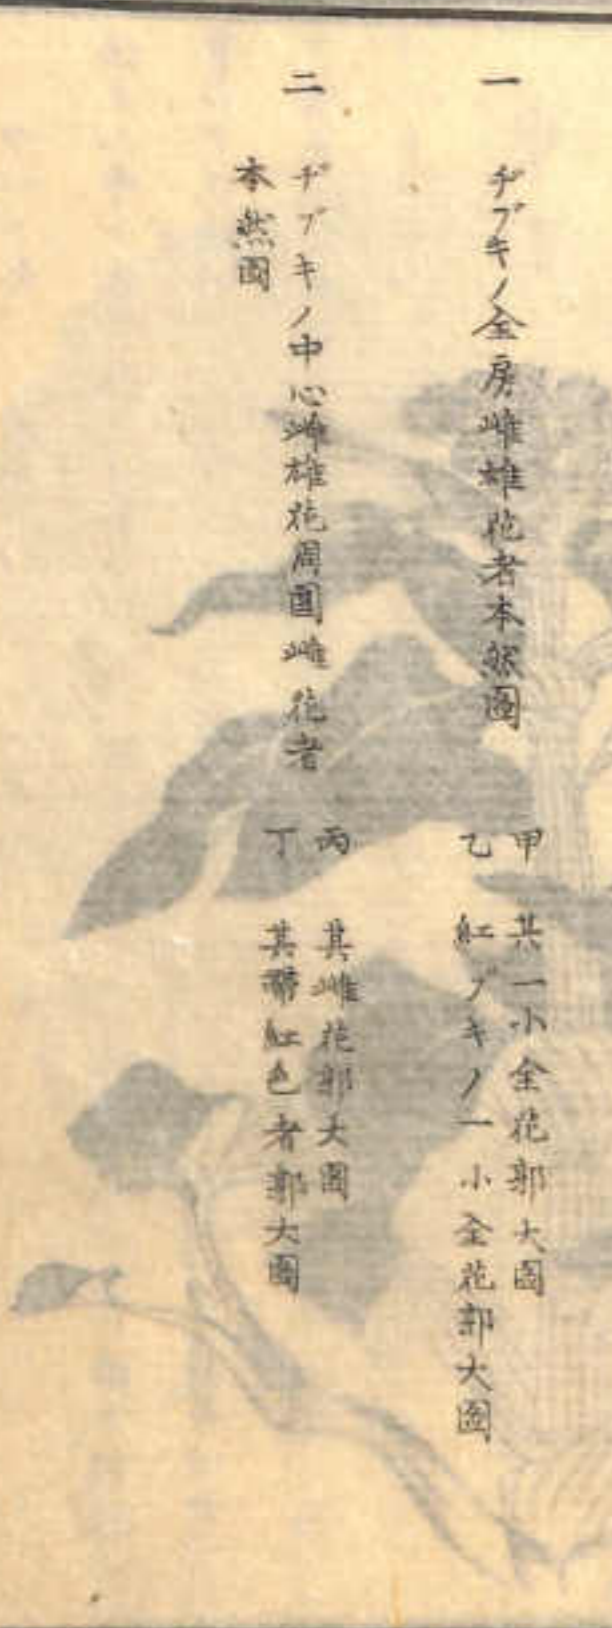 一 ヂブキノ全房雌雄花者本然圖
甲 其一小全花郭大圖
乙 紅ブキノ一小全花郭大圖
二 ヂブキノ中心雌雄花周圍雌花者
本然圖
丙 其雌花郭大圖
丁 其帶紅色者郭大圖